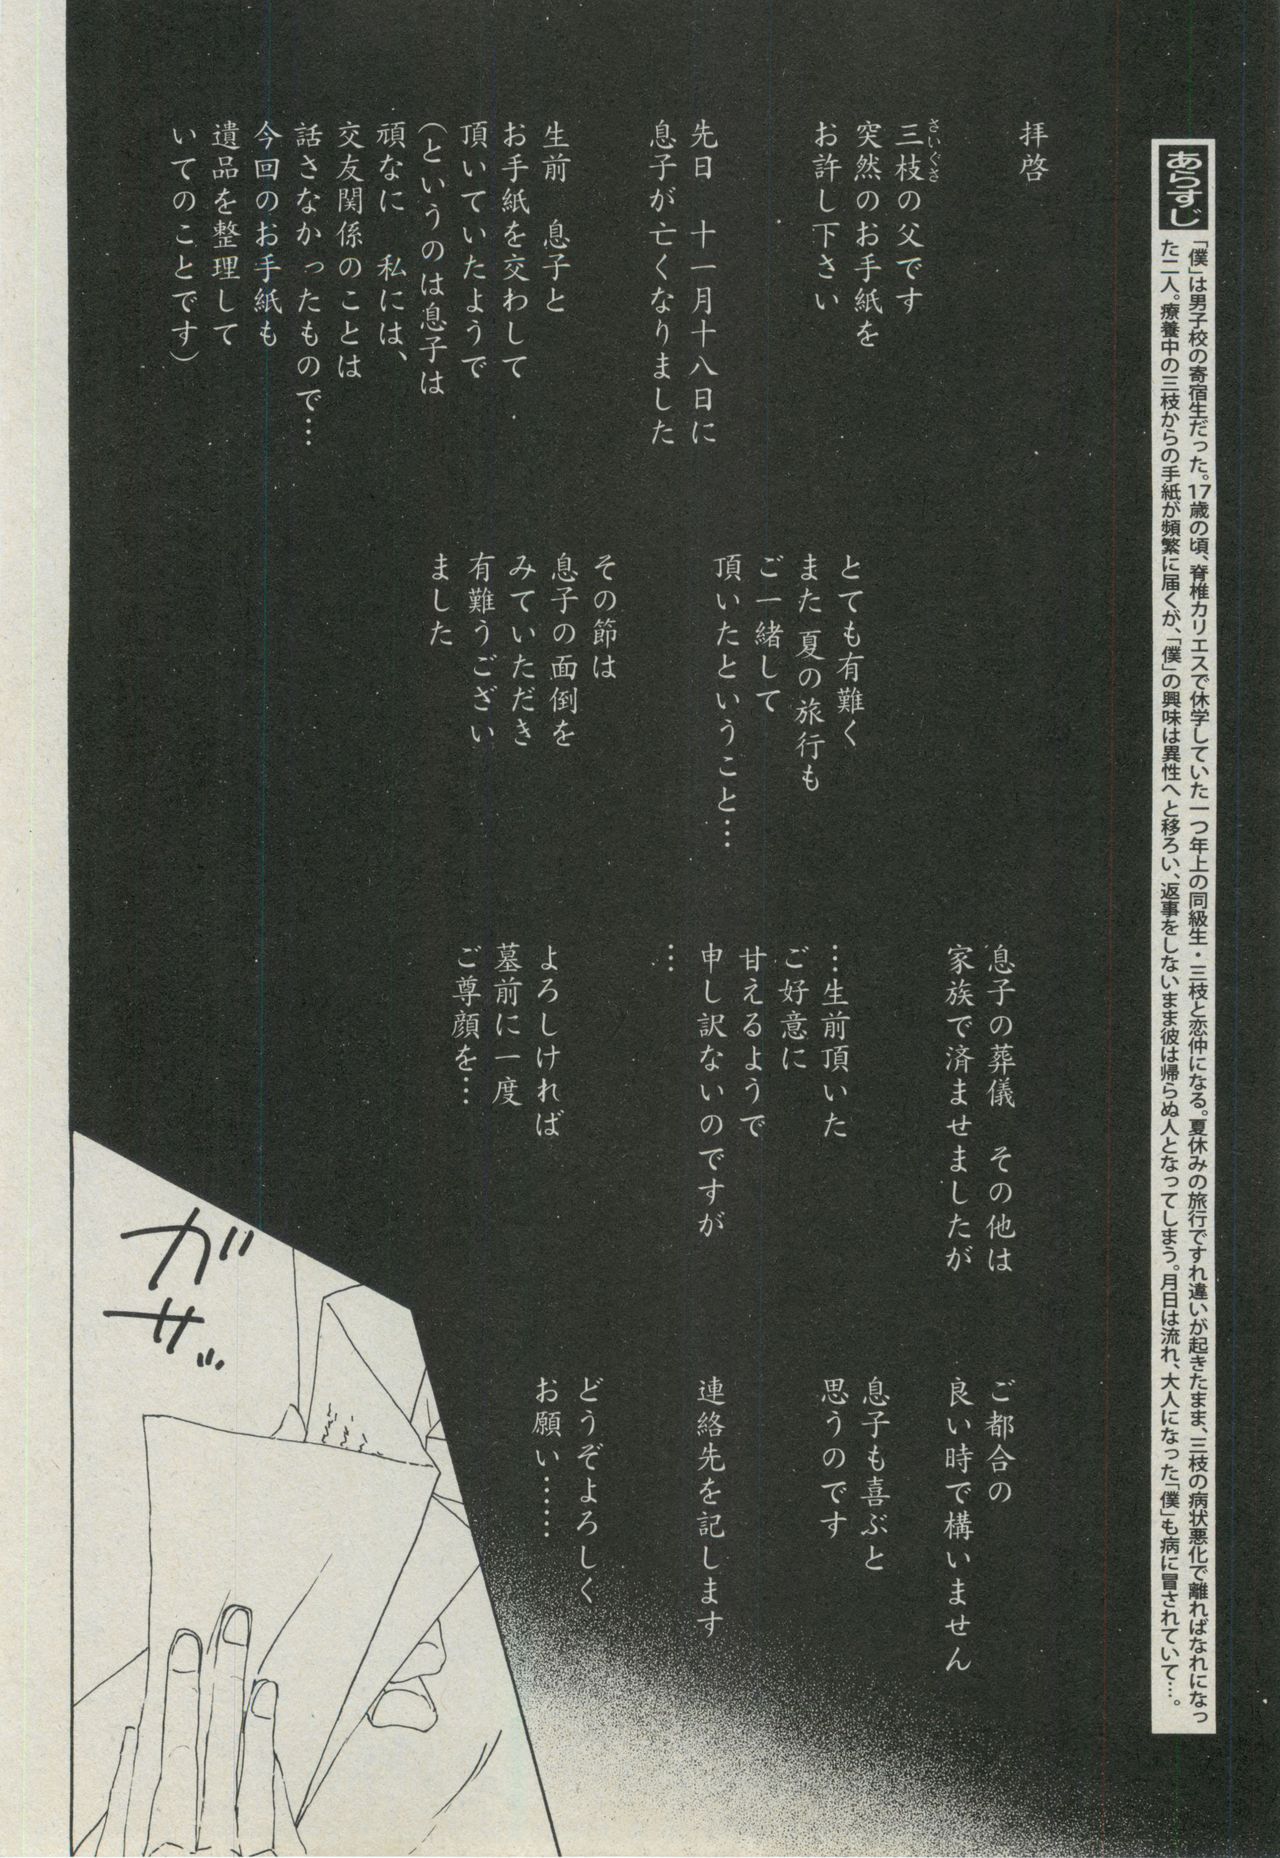 あらすじ
「僕」は男子校の寄宿生だった。17歳の頃、脊椎カリエスで休学していた一つ年上の同級生・三枝と恋仲になる。夏休みの旅行ですれ違いが起きたまま、三枝の病状悪化で離ればなれになっ
た二人。療養中の三枝からの手紙が頻繁に届くが、「僕」の興味は異性へと移ろい、返事をしないまま彼は帰らぬ人となってしまう。月日は流れ、大人になった「僕」も病に冒されていて…。
拝啓
三枝の父です
さいぐさ
突然のお手紙を
お許し下さい
先日 十一月十八日に
息子が亡くなりました
生前 息子と
お手紙を交わして
頂いていたようで
(というのは息子は
頑なに 私には、
交友関係のことは
話さなかったもので…
今回のお手紙も
遺品を整理して
いてのことです)
とても有難く
また 夏の旅行も
ご一緒して
頂いたということ…
その節は
息子の面倒を
みていただき
有難うござい
ました
息子の葬儀 その他は
家族で済ませましたが
…生前頂いた
ご好意に
甘えるようで
申し訳ないのですが
…
よろしければ
墓前に一度
ご尊顔を…
ご都合の
良い時で構いません
息子も喜ぶと
思うのです
連絡先を記します
どうぞよろしく
お願い……
ガサ…